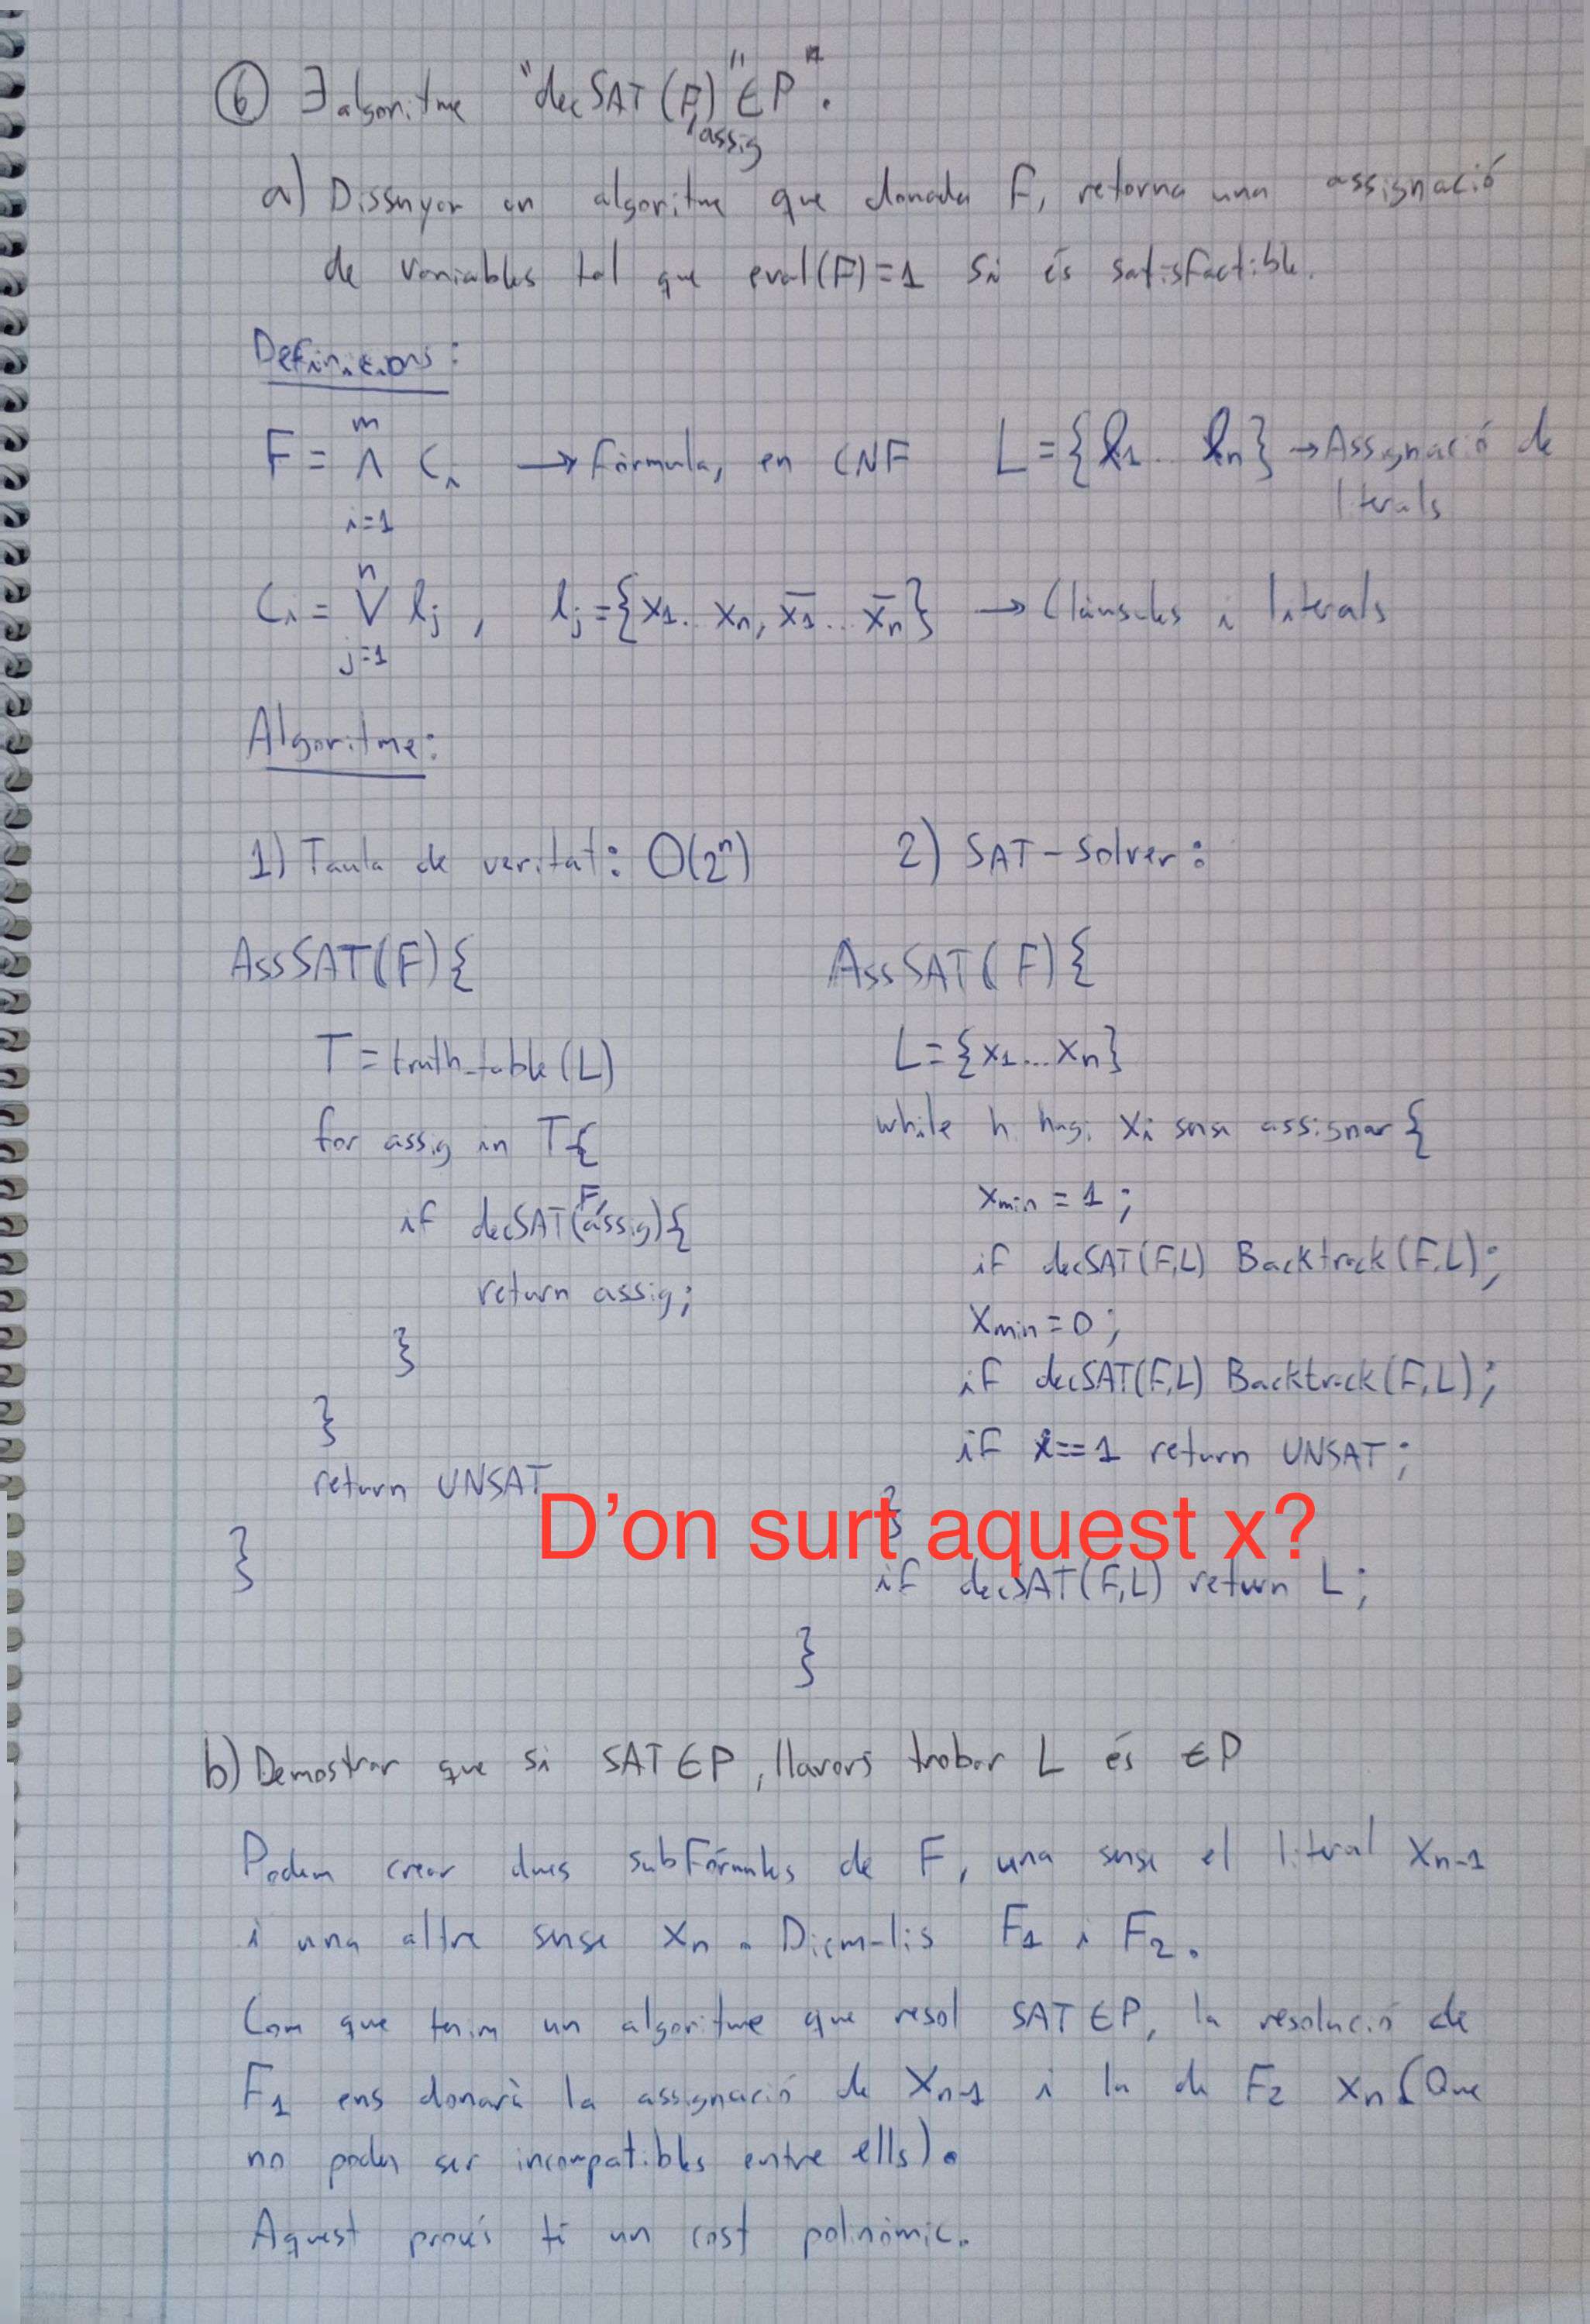 ⑥ ∃ algoritme "decSAT(F, assig)" ∈ P".
a) Dissenyar un algoritme que donada F, retorna una assignació
de variables tal que eval(F)=1 si és satisfactible.
Definicions:
F = ∧ i=1 m Cᵢ → Fórmula, en CNF L={l₁...lₙ} → Assignació de literals
Cᵢ = ∨ j=1 n lⱼ, lⱼ={x₁...xₙ, x̄₁...x̄ₙ} → Clàusules i literals
Algoritme:
1) Taula de veritat: O(2ⁿ)
AssSAT(F){
T = truth_table(L)
for assig in T{
if decSAT(F, assig){
return assig;
}
}
return UNSAT
}
2) SAT-solver:
AssSAT(F){
L={x₁...xₙ}
while hi hagi xᵢ sense assignar{
xmin = 1;
if decSAT(F,L) Backtrack(F,L);
xmin = 0;
if decSAT(F,L) Backtrack(F,L);
if ==1 return UNSAT;
}
D'on surt aquest x?
if decSAT(F,L) return L;
}
b) Demostrar que si SAT∈P, llavors trobar L és ∈P
Podem crear dues subfórmules de F, una sense el literal xₙ₋₁
i una altre sense xₙ. Diem-lis F₁ i F₂.
Com que tenim un algoritme que resol SAT∈P, la resolució de
F₁ ens donarà la assignació de xₙ₋₁ i la de F₂ xₙ (Que
no poden ser incompatibles entre ells).
Aquest procés té un cost polinòmic.